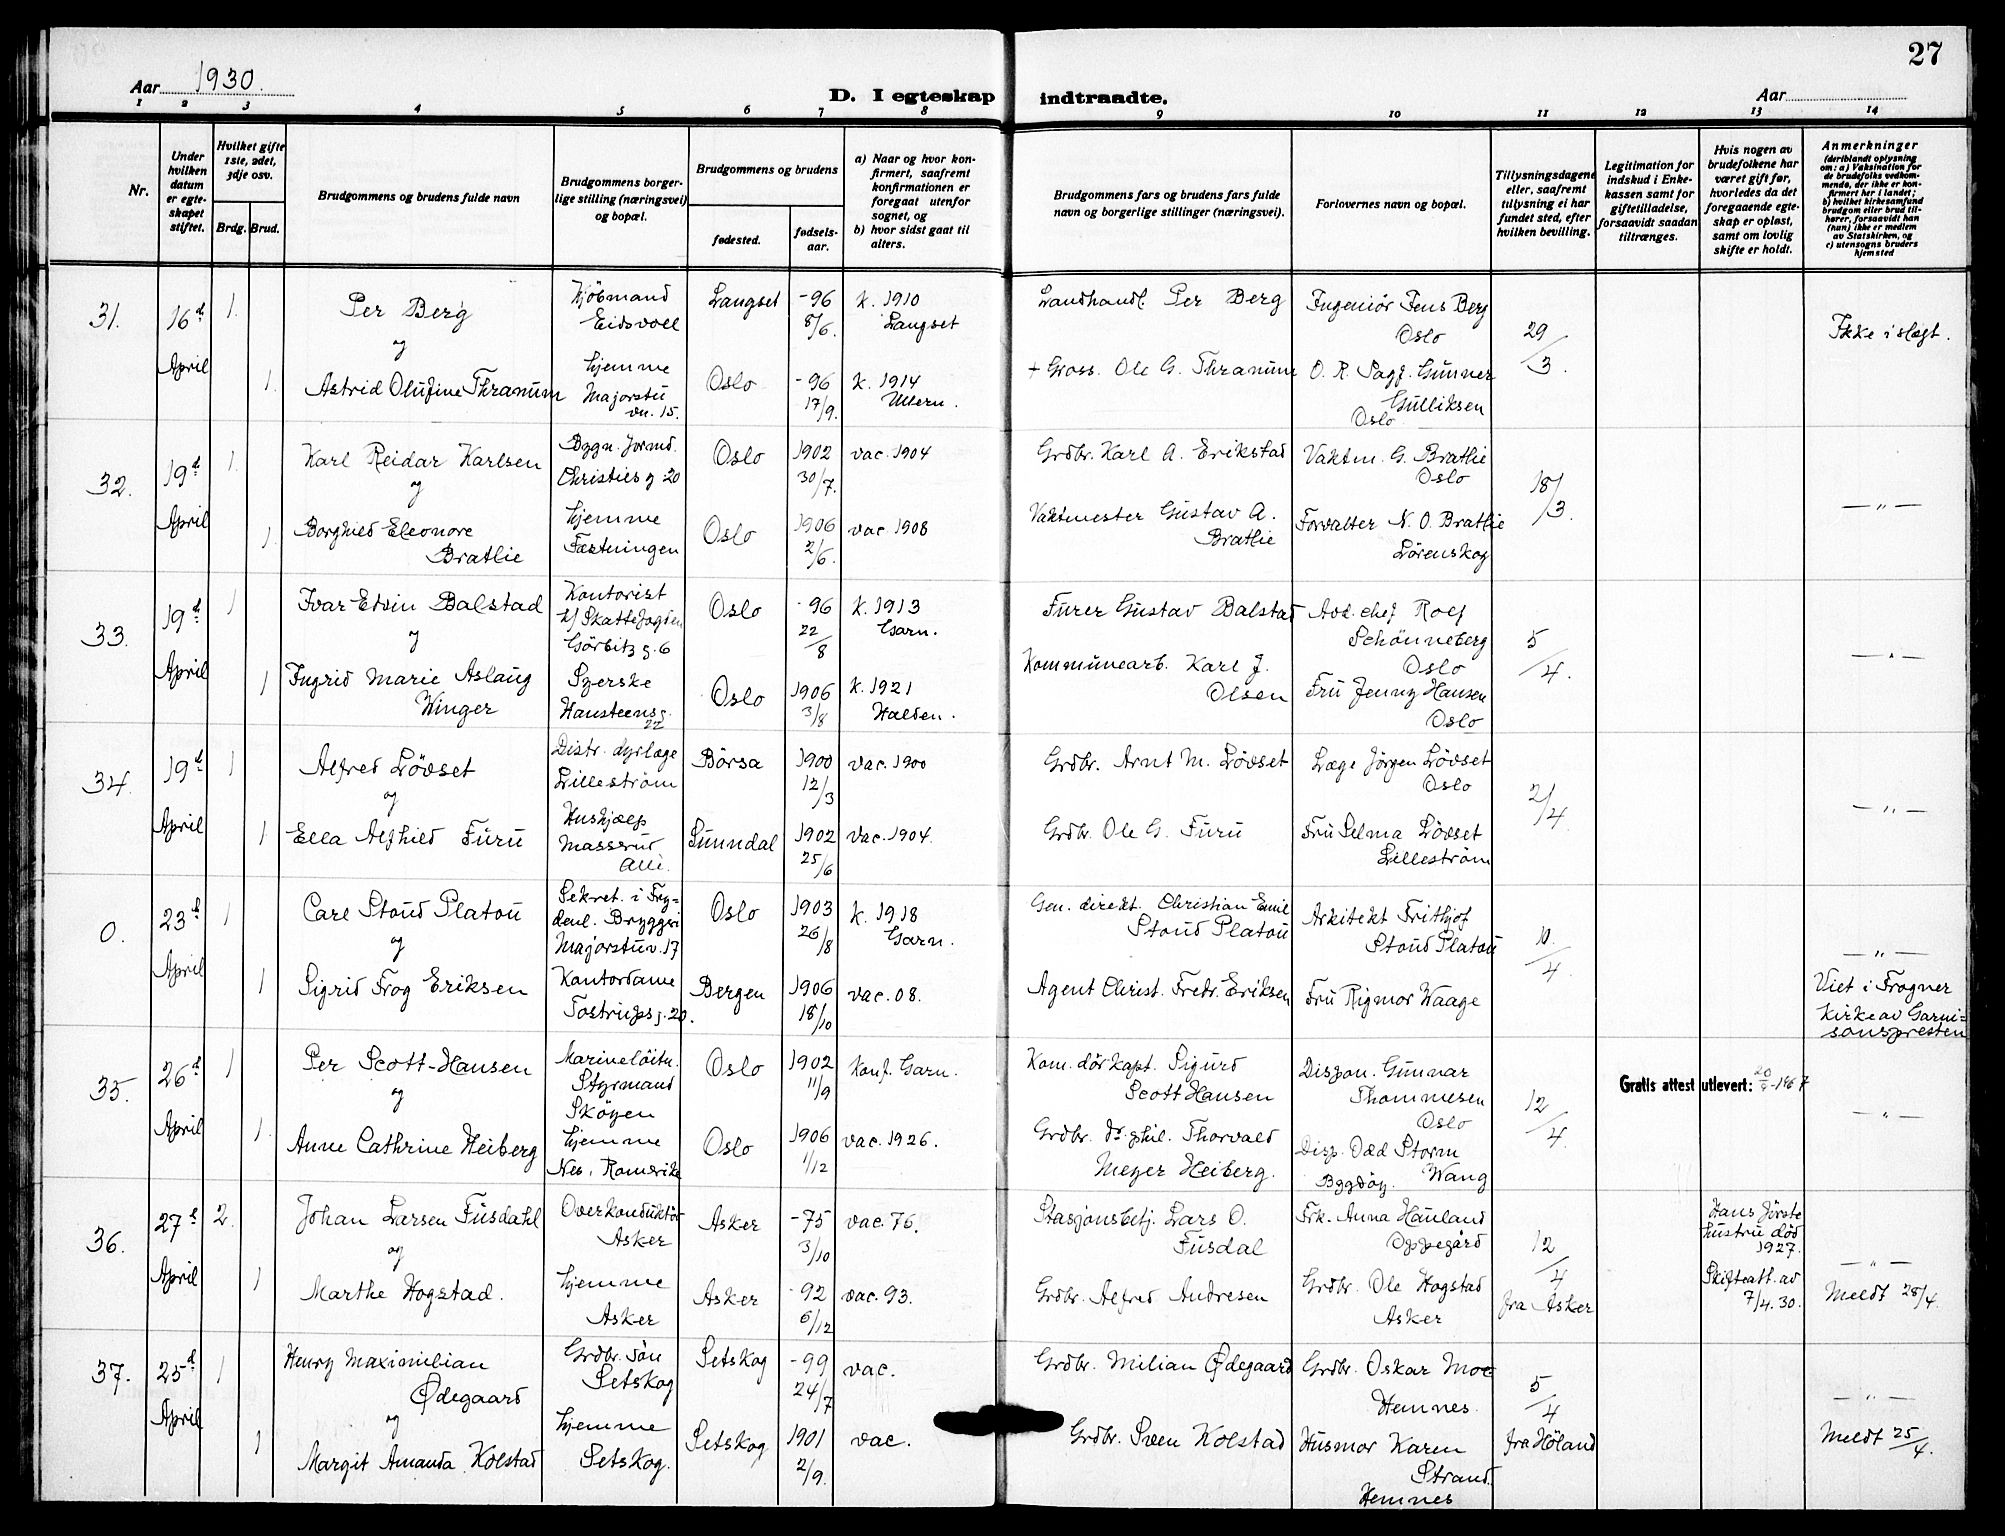 27
Aar 1930.
D. I egteskap indtraadte.
Aar
1 2 3 4 5 6 7 8 9 10 11 12 13 14
Nr.
Under
hvilken
datum
er egte-
skapet
stiftet.
Hvilket gifte
1ste, 2det,
3dje osv.
Brdg. Brud.
Brudgommens og brudens fulde navn
Brudgommens borger-
lige stilling (næringsvei)
og bopæl.
Brudgommens og brudens
fødested.
fødsels-
aar.
a) Naar og hvor kon-
firmert, saafremt
konfirmationen er
foregaat utenfor
sognet, og
b) hvor sidst gaat til
alters.
Brudgommens fars og brudens fars fulde
navn og borgerlige stillinger (næringsvei).
Forlovernes navn og bopæl.
Tillysningsdagene
eller, saafremt
tillysning ei har
fundet sted, efter
hvilken bevilling.
Legitimation for
indskud i Enke-
kassen samt for
giftetilladelse,
forsaavidt saadan
tiltrænges.
Hvis nogen av
brudefolkene har
været gift før,
hvorledes da det
foregaaende egte-
skap er opløst,
samt om lovlig
skifte er holdt.
Anmerkninger
(deriblandt oplysning
om: a) Vaksination for
de brudefolks vedkom-
mende, der ikke er kon-
firmert her i landet;
b) hvilket kirkesamfund
brudgom eller brud til-
hører, forsaavidt han
(hun) ikke er medlem
av Statskirken, og
c) utensogns bruders
hjemsted
31.
16d April
1.
Per Berg
Kjöbmand
Eidsvoll
Langset
-96
8/6.
k. 1910
Langset
Landhandl. Per Berg
Ingeniør Jens Berg
Oslo
29/3.
Ikke i slegt.
og
1.
Astrid Olufine Thranum
hjemme
Majorstu
vn. 15.
Oslo
-96
17/9.
k. 1914
Ullern.
+ Gross. Ole G. Thranum
O. R. Sagf. Gunner
Gulliksen
Oslo
32.
19d April
1.
Karl Reidar Karlsen
Bygn. formd.
Christies g 20
Oslo
1902
30/7.
vac. 1904
Grdbr. Karl A. Erikstad
Vaktm. G. Bratlie
Oslo
18/3.
— " —
og
1.
Borghild Eleonore
Bratlie
hjemme
Fæstningen
Oslo
1906
2/6.
vac 1908
Vaktmester Gustav A.
Bratlie
Forvalter N. O. Bratlie
Lörenskog
33.
19d April
1
Ivar Edvin Balstad
Kontorist
Skattefogden
Görbitz g. 6
Oslo
-96
22/8
k. 1913
Garn.
Furer Gustav Balstad
Avd. chef Rolf
Schönneberg
Oslo
5/4.
— " —
og
1
Ingrid Marie Aslaug
Winger
Syerske
Hansteens g.
22
Oslo
1906
3/8
k. 1921
Halden.
Kommunearb. Karl J.
Olsen
Fru Jenny Hansen
Oslo
34.
19d April
1
Alfred Lövset
Distr. dyrlæge
Lilleström
Börsa
1900
12/3
vac. 1900
Grdbr. Arnt M. Lövset
Læge Jörgen Lövset
Oslo
2/4
— " —
og
1
Ella Alfhild Furu
Hushjælp
Masserud
Alle.
Sunndal
1902
25/6
vac. 1904.
Grdbr. Ole G. Furu
Fru Selma Lövset
Lilleström
0.
23d April
1
Carl Stoud Platou
Sekret. i Fry-
denl. Bryggeri
Majorstuv. 17
Oslo
1903
26/8
k. 1918
Garn.
Gen. direkt. Christian Emil
Stoud Platou
Arkitekt Frithjof
Stoud Platou
10./4.
— " —
og
1
Sigrid Frog Eriksen
Kontordame
Tostrups g. 20.
Bergen
1906
18/10
vac. 08.
Agent Christ. Fredr. Eriksen
Fru Rigmor Waage
Viet i Frogner
Kirke av Garni=
sonspresten
35.
26d April
1
Per Scott-Hansen
Marinelöitn.
Styrmand
Sköyen
Oslo
1902
11/9
Konf. Garn.
Kom. dörkapt. Sigurd
Scott Hansen
Dispon. Gunnar
Thommesen
Oslo
12/4.
Gratis attest utlevert: 20/9-1967
— " —
og
1.
Anne Cathrine Heiberg
hjemme
Nes, Romerike
Oslo
1906
1/12
vac. 1926.
Grdbr. dr. phil. Thorvald
Meyer Heiberg.
Disp. Odd Storm
Wang
Bygdöy.
36.
27d April
2.
Johan Larsen Fusdahl
Overkonduktör
Asker
Asker
-75
3/10
vac. 76.
Stasjonsbetj. Lars O.
Fusdal
Frk. Anna Hauland
Oppegård
12/4
fra Asker
Hans förste
hustru död
1927.
Skifteatt. av
7/4.30.
— " —
Meldt 28/4.
og
1
Marthe Hogstad.
hjemme
Asker
Asker
-92
6/12
vac. 93.
Grdbr. Alfred Andresen
Grdbr. Ole Hogstad
Asker
37.
25d April
1
Henry Maximilian
Ødegaard
Grdbr. sön
Setskog
Setskog
-99
24/7
vac.
Grdbr. Milian Ødegaard
Grdbr. Oskar Moe
Hemnes.
5/4
fra Höland
— " —
Meldt 25/4.
og
1
Margit Amanda Kolstad
hjemme
Setskog.
Setskog
1901
2/9.
vac.
Grdbr. Sven Kolstad
Husmor Karen
Strand.
Hemnes